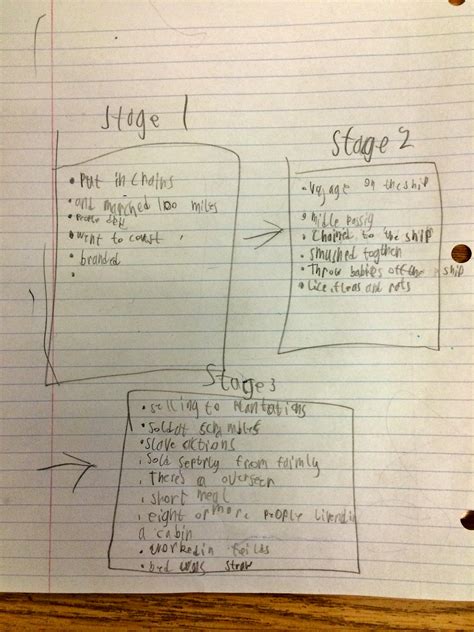 Stage 1
• Put in Chains
• and marched 100 miles
• People
• went to coast
• branded
•
Stage 2
• Voyage on the ship
• middle passig
• Chained to the ship
• smushed together
• Throw babies off the ship
• Lice, fleas and rats
Stage 3
• selling to Plantations
• Sold at
• slave actions
• Sold seprtly from faimly
• Theres a overseer
• short meal
• eight or more People lived in
a cabin
• worked in feilds
• bed was straw